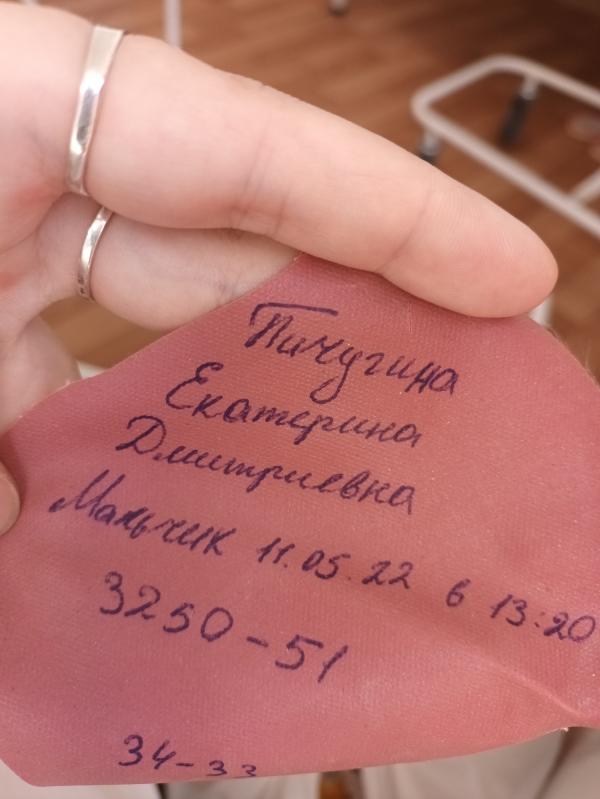 Пичугина
Екатерина
Дмитриевна
Мальчик 11.05.22 в 13:20
3250-51
34-33